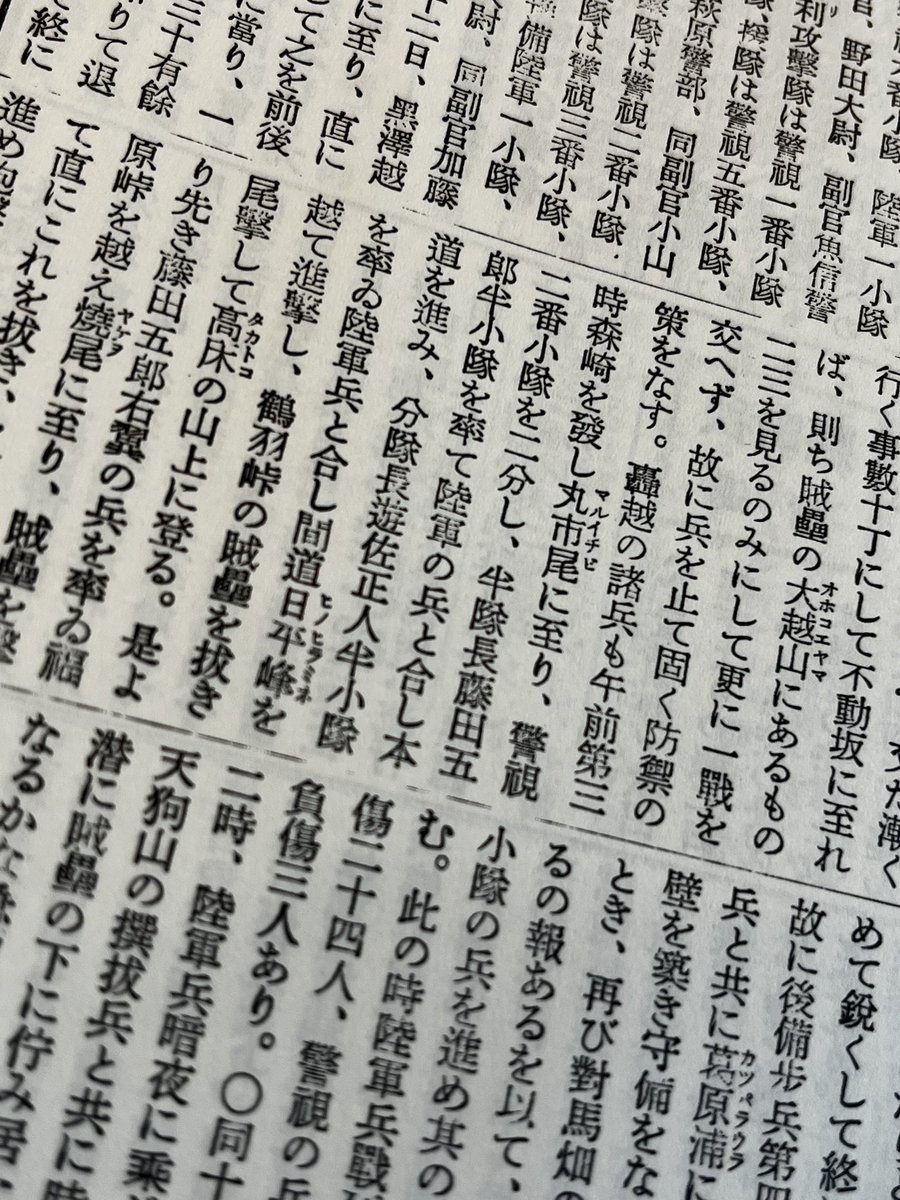 番小隊、陸軍一小隊
野田大尉、副官魚信警
利攻擊隊は警視一番小隊
隊、援隊は警視五番小隊、
萩原警部、同副官小山
隊は警視二番小隊、
隊は警視三番小隊、
備陸軍一小隊、
大尉、同副官加藤
十二日、黑澤越
に至り、直に
て之を前後
に當り、一
三十有餘
りて退
て終に
行く事數十丁にして不動坂に至れ
ば、則ち賊壘の大越山にあるもの
オホコエヤマ
二三を見るのみにして更に一戰を
交へず、故に兵を止て固く防禦の
策をなす。轟越の諸兵も午前第三
時森崎を發し丸市尾に至り、警視
マルイチビ
二番小隊を二分し、半隊長藤田五
郎半小隊を率て陸軍の兵と合し本
道を進み、分隊長遊佐正人半小隊
を率ゐ陸軍兵と合し間道日平峰を
ヒノヒラミネ
越て進擊し、鶴羽峠の賊壘を拔き
尾擊して高床の山上に登る。是よ
タカトコ
り先き藤田五郎右翼の兵を率ゐ福
原峠を越え燒尾に至り、賊壘を擊
ヤケヲ
て直にこれを拔き、
進め
めて銳くして終
故に後備步兵第四
兵と共に葛原浦に
カツバラウラ
壁を築き守備をな
とき、再び對馬畑の
るの報あるを以て、
小隊の兵を進め其の
む。此の時陸軍兵戰
傷二十四人、警視の兵
負傷三人あり。〇同十
二時、陸軍兵暗夜に乘
天狗山の撰拔兵と共に時
潛に賊壘の下に佇み居
なるかな